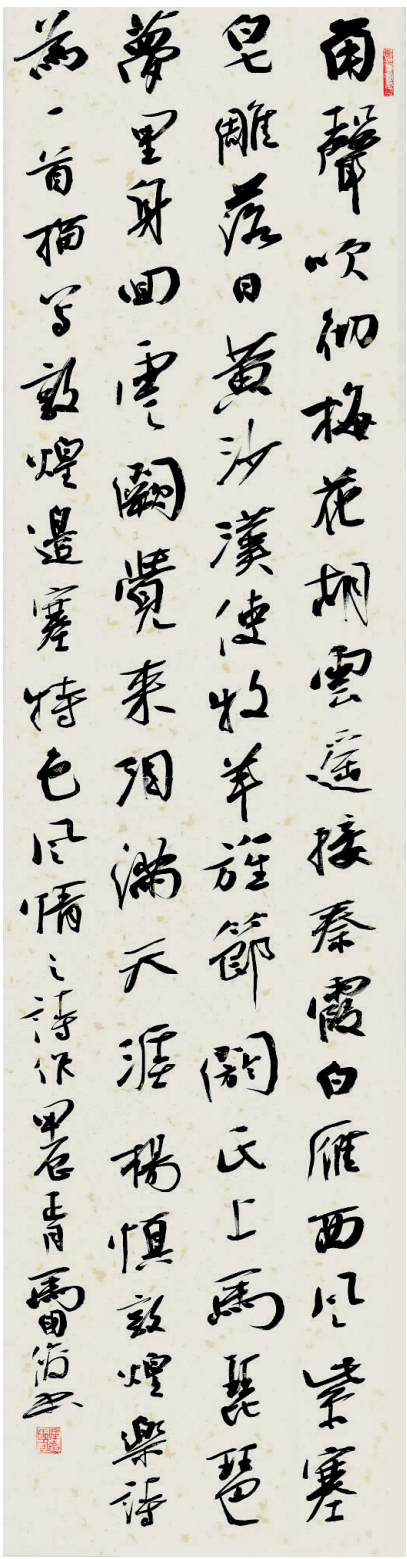 角聲吹彻梅花胡雲遥接秦霞白雁西风紫塞
皂雕落日黄沙漢使牧羊旌節閼氏上馬琵琶
夢里身回雲闕覺来泪滿天涯楊慎敦煌樂詩
為一首描写敦煌邊塞特色风情之詩作甲辰书